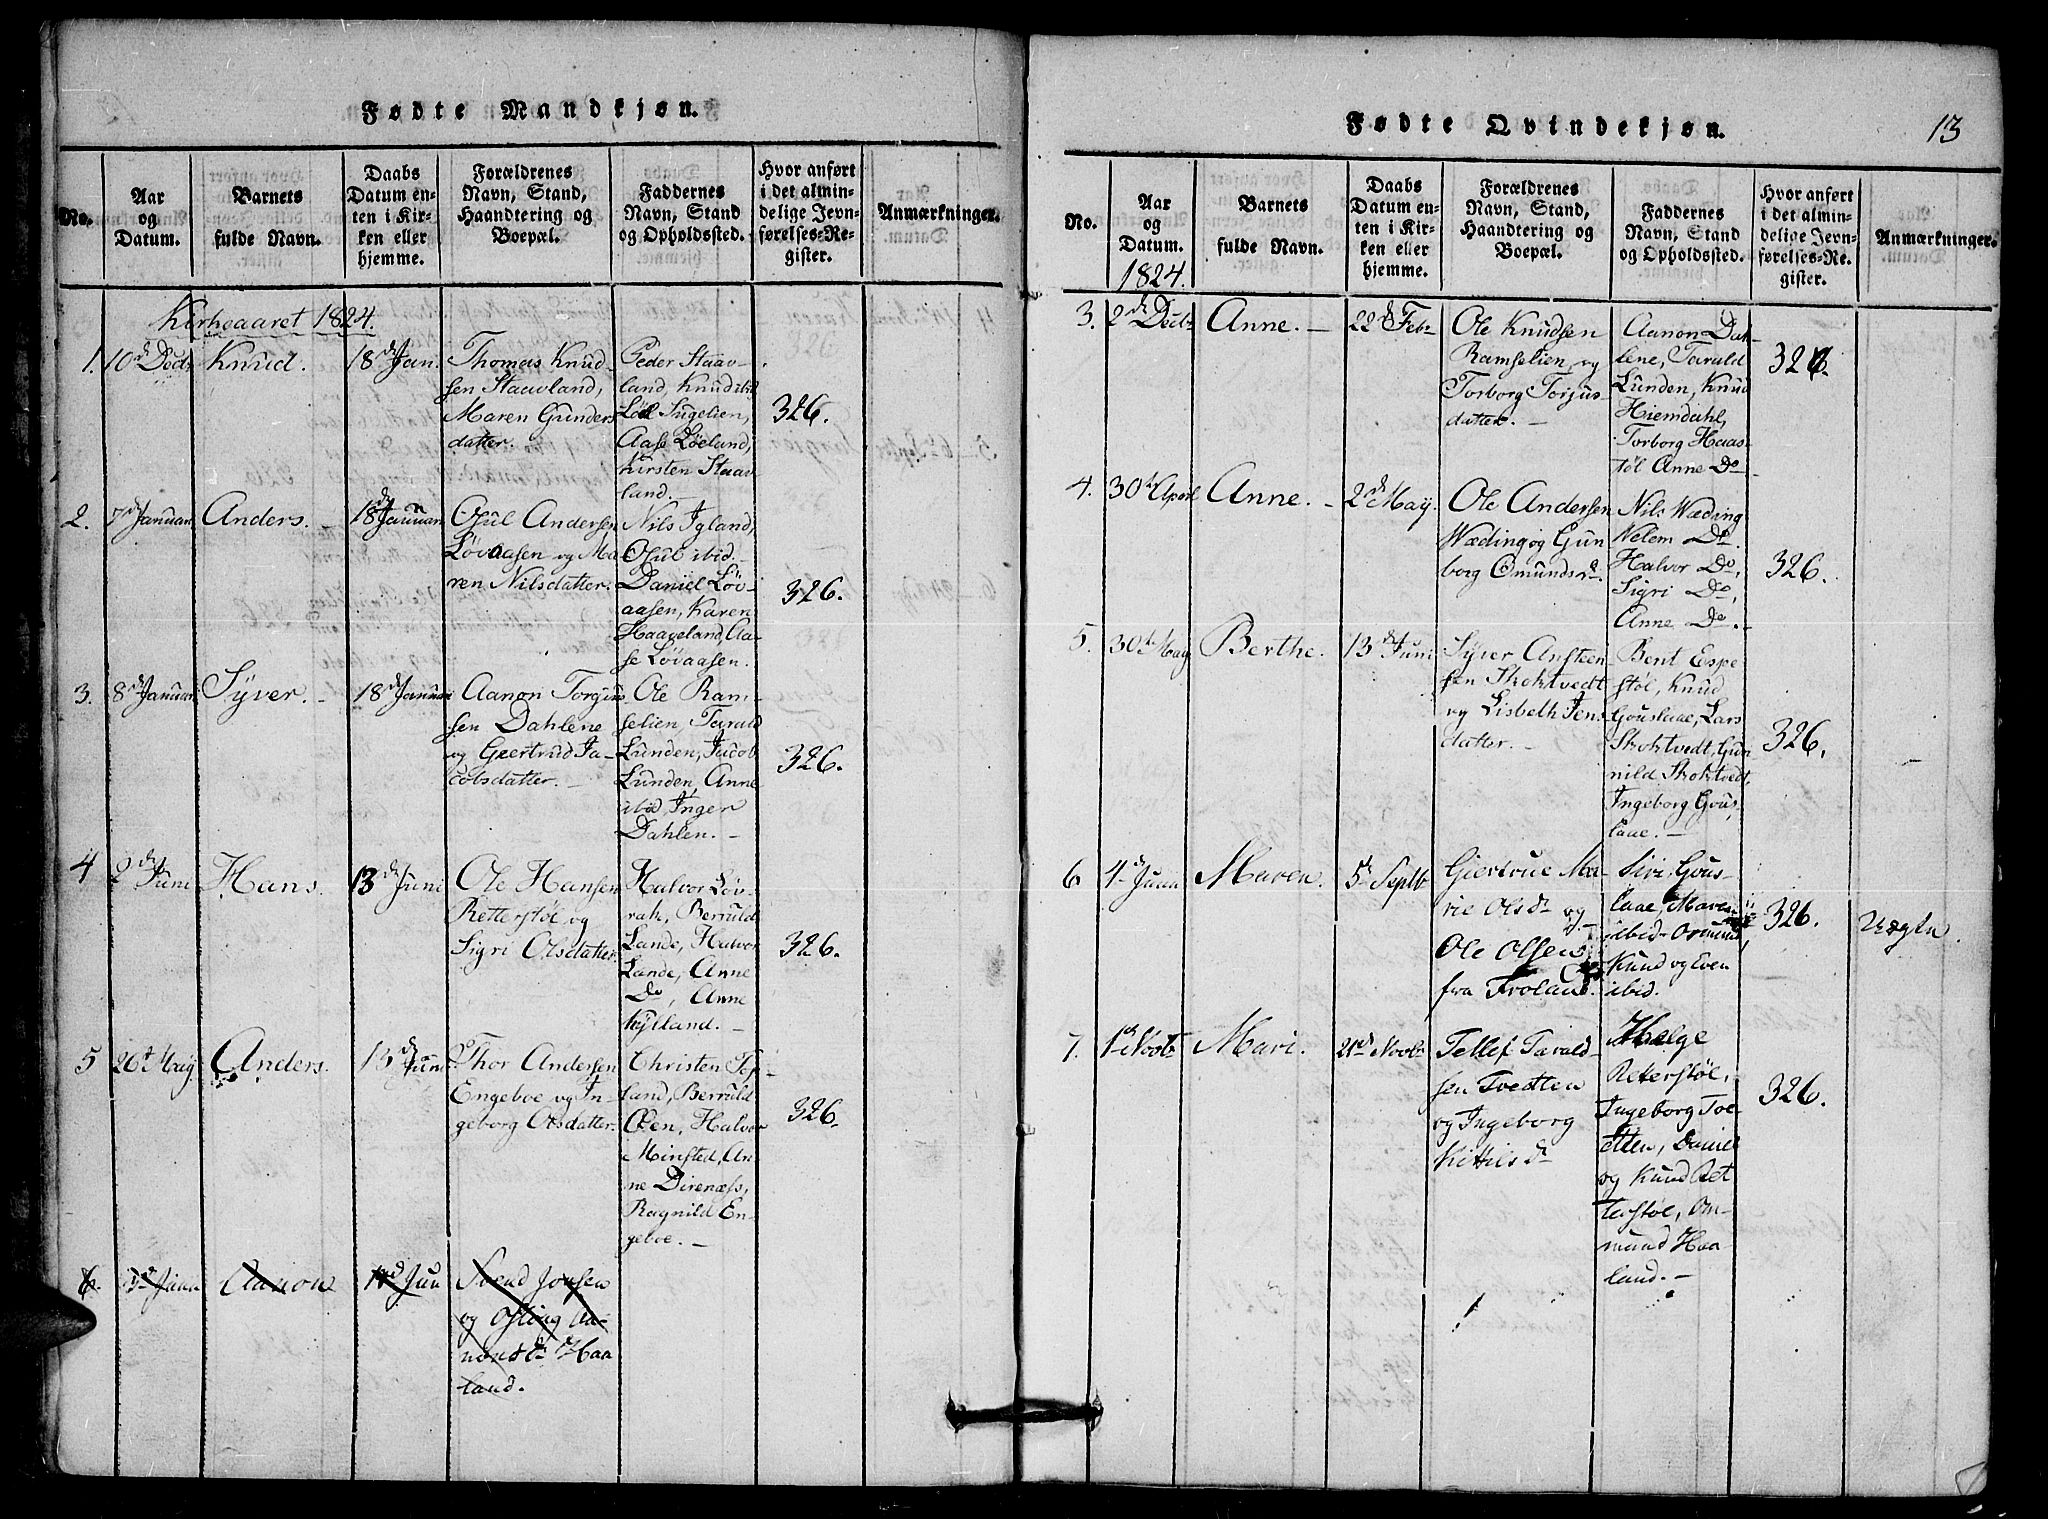 Fødte Mandkjøn.
No.
Aar
og
Datum.
Barnets
fulde Navn.
Daabs
Datum en-
ten i Kir-
ken eller
hjemme.
Forældrenes
Navn, Stand,
Haandtering og
Boepæl.
Faddernes
Navn, Stand
og Opholdssted.
Hvor anført
i det almin-
delige Jevn-
førelses-Re-
gister.
Anmærkninger.
Kirkeaaret 1824.
1.
Knud.
18d Jan.
Thomas Knud-
sen Staavland,
Maren Gunders
datter.
Peder Staav-
land, Knud ibid
Aase Løeland,
Kirsten Staav
land.
326.
2.
7d Januari
Anders.
18d Januari
Osul Andersen
Løvaasen og Ma-
ren Nilsdatter.
Nils Igland,
Osul ibid
Daniel Løv-
aasen, Karen
Haaveland, Aa-
se Løvaasen.
326.
3.
8d Januari
Syver.
18d Januari
Aanon Torgius
sen Dahlene
og Geertrud Ja-
cobsdatter.
Ole Ram-
selien, Tarald
Lunden, Jacob
Lunden, Anne
ibid, Inger
Dahlen.
326.
4
2d Juni
Hans.
13d Juni
Ole Hansen
Retterstøl og
Sigri Olsdatter.
Halvor Løv-
rak, Berruld
Lande, Halvor
Lande, Anne
Do, Anne
Kylland.
326.
5
26d May
Anders.
13d Juni
Thor Andersen
Engeboe og In-
geborg Olsdatter.
Christen Tef-
land, Berruld
Øen, Halvor
Minsted, An-
ne Direnæss,
Ragnild En-
geboe.
326.
6.
Aanon
Svend Jonsen
og Aa-
nons d Haa
land.
Fødte Qvindekjøn.
13
No.
Aar
og
Datum.
1824.
Barnets
fulde Navn.
Daabs
Datum en-
ten i Kir-
ken eller
hjemme.
Forældrenes
Navn, Stand,
Haandtering og
Boepæl.
Faddernes
Navn, Stand
og Opholdssted.
Hvor anført
i det almin-
delige Jevn-
førelses-Re-
gister.
Anmærkninger.
3.
2d Decbr
Anne.
22d Febr
Ole Knudsen
Ramselien og
Torborg Torjus-
datter.
Aanon Dah-
lene, Tarald
Lunden, Knud
Hiemdahl,
Torborg Haas-
tøl Anne Do
326.
4.
30d April
Anne.
2d May
Ole Andersen
Wæding og Gun
borg Omunds d.
Nils Wæding
Nelem Do.
Halvor Do,
Sigri Do,
Anne Do.
326.
5.
30d May
Berthe.
13d Juni
Syver Ansteen
sen Skoktvedt
og Lisbeth Jens
datter.
Bent Espe
støl, Knud
Gouslaae, Lars
Skoktvedt, Gun
nild Skoktvedt,
Ingeborg Gous-
laae.
326.
6
4d Juni
Maren.
5d Septb
Giertrue Ma-
rie Olsd og
Ole Olsen
fra Froland.
Siri Gous-
laae, Maren
ibid Omund
Knud og Even
ibid.
326.
Uægte.
7.
1d Novb
Mari.
21d Novb
Tellef Tarald-
sen Tvedten
og Ingeborg
Kittilsd
Helge
Reterstøl,
Ingeborg Tve-
etten, Daniel
og Knud Ret
terstøl, Om-
mund Haa
land.
326.